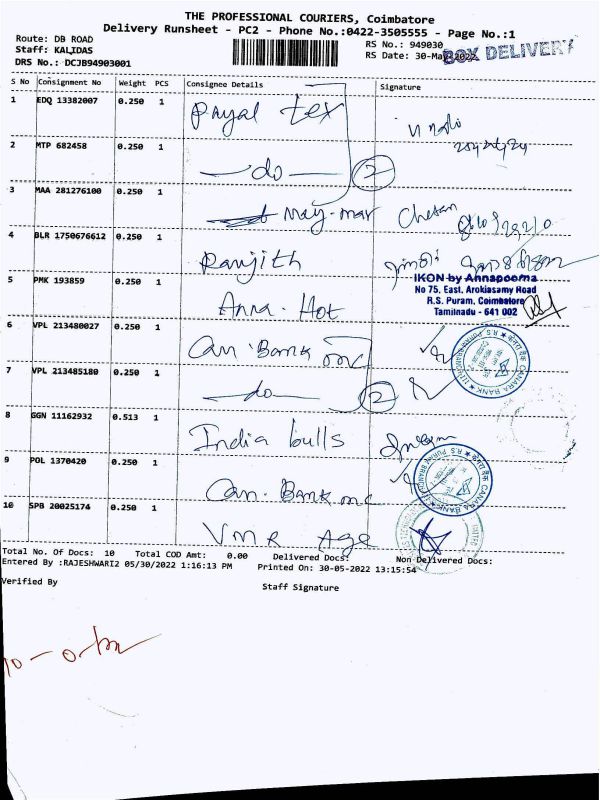 THE PROFESSIONAL COURIERS, Coimbatore
Delivery Runsheet - PC2 - Phone No.:0422-3505555 - Page No.:1
Route: DB ROAD
Staff: KALIDAS
DRS No.: DCJB94903001
RS No.: 949030
RS Date: 30-May-2022
BOX DELIVERY
S No Consignment No Weight PCS Consignee Details Signature
1 EDQ 13382007 0.250 1 Payal tex
2 MTP 682458 0.250 1 — do — 2
3 MAA 281276100 0.250 1 May-mar Chetan
4 BLR 1750676612 0.250 1 Ranjith
IKON by Annapoorna
No 75, East, Arokiasamy Road
R.S. Puram, Coimbatore
Tamilnadu - 641 002
5 PMK 193859 0.250 1 Anna. Hot
6 VPL 213480027 0.250 1 Can. Bank
7 VPL 213485180 0.250 1 — do — 2
CANARA BANK
8 GGN 11162932 0.513 1 India bulls
9 POL 1370420 0.250 1 Can. Bank
CANARA BANK
10 SPB 20025174 0.250 1 VMR Age
Total No. Of Docs: 10 Total COD Amt: 0.00 Delivered Docs: Non Delivered Docs:
Entered By :RAJESHWARI2 05/30/2022 1:16:13 PM Printed On: 30-05-2022 13:15:54
Verified By Staff Signature